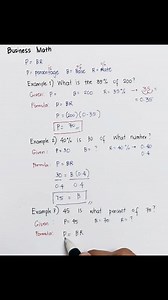 Business Math
P = BR
P = Percentage B = Base R = Rate
Example 1) What is the 35% of 200?
Given: P = ? B = 200 R = 35%
Formula: P = BR
P = (200)(0.35)
Example 2) 40% is 30 of what number?
Given: P = 30 B = ? R = 40% → 0.40
Formula: P = BR
30 = B (0.4)
0.4 0.4
75 = B
Example 3) 45 is what percent of 70?
Given: P = 45 B = 70 R = ?
Formula: P = BR